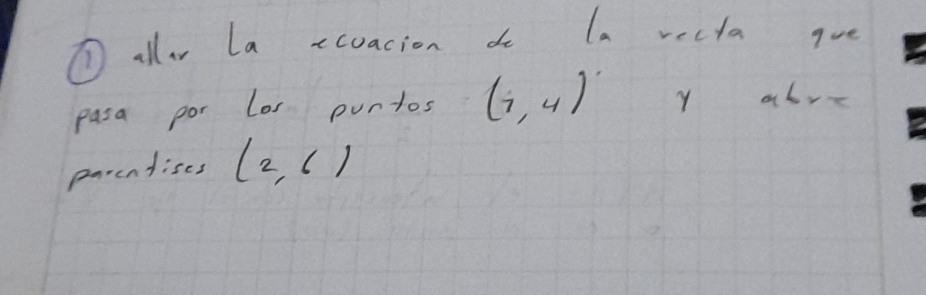 ① allar La ecuacion de la recta que
pasa por los puntos (1,4) y abre
parentises (2,6)